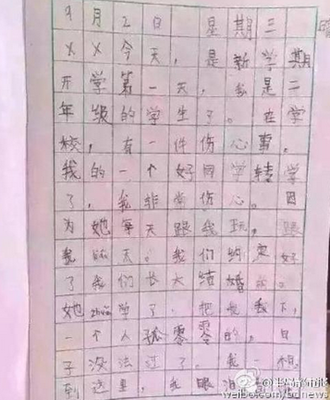 9月2日 星期三
××今天,是新学期
开学第一天,我是二
年级的学生了。在学
校,有一件伤心事。
我的一个好同学转学
了,我非常伤心。因
为她每天跟我玩,跟
我聊天。我们约定好
了我们长大结婚的。
她转学了,把我丢下,
一个人孤零零的,日
子没法过了,我一想
到这里,我眼泪
weibo.com/bdnews